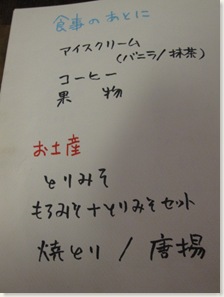 食事のあとに
アイスクリーム
(バニラ/抹茶)
コーヒー
果物
お土産
とりみそ
もろみそ+とりみそセット
焼とり / 唐揚